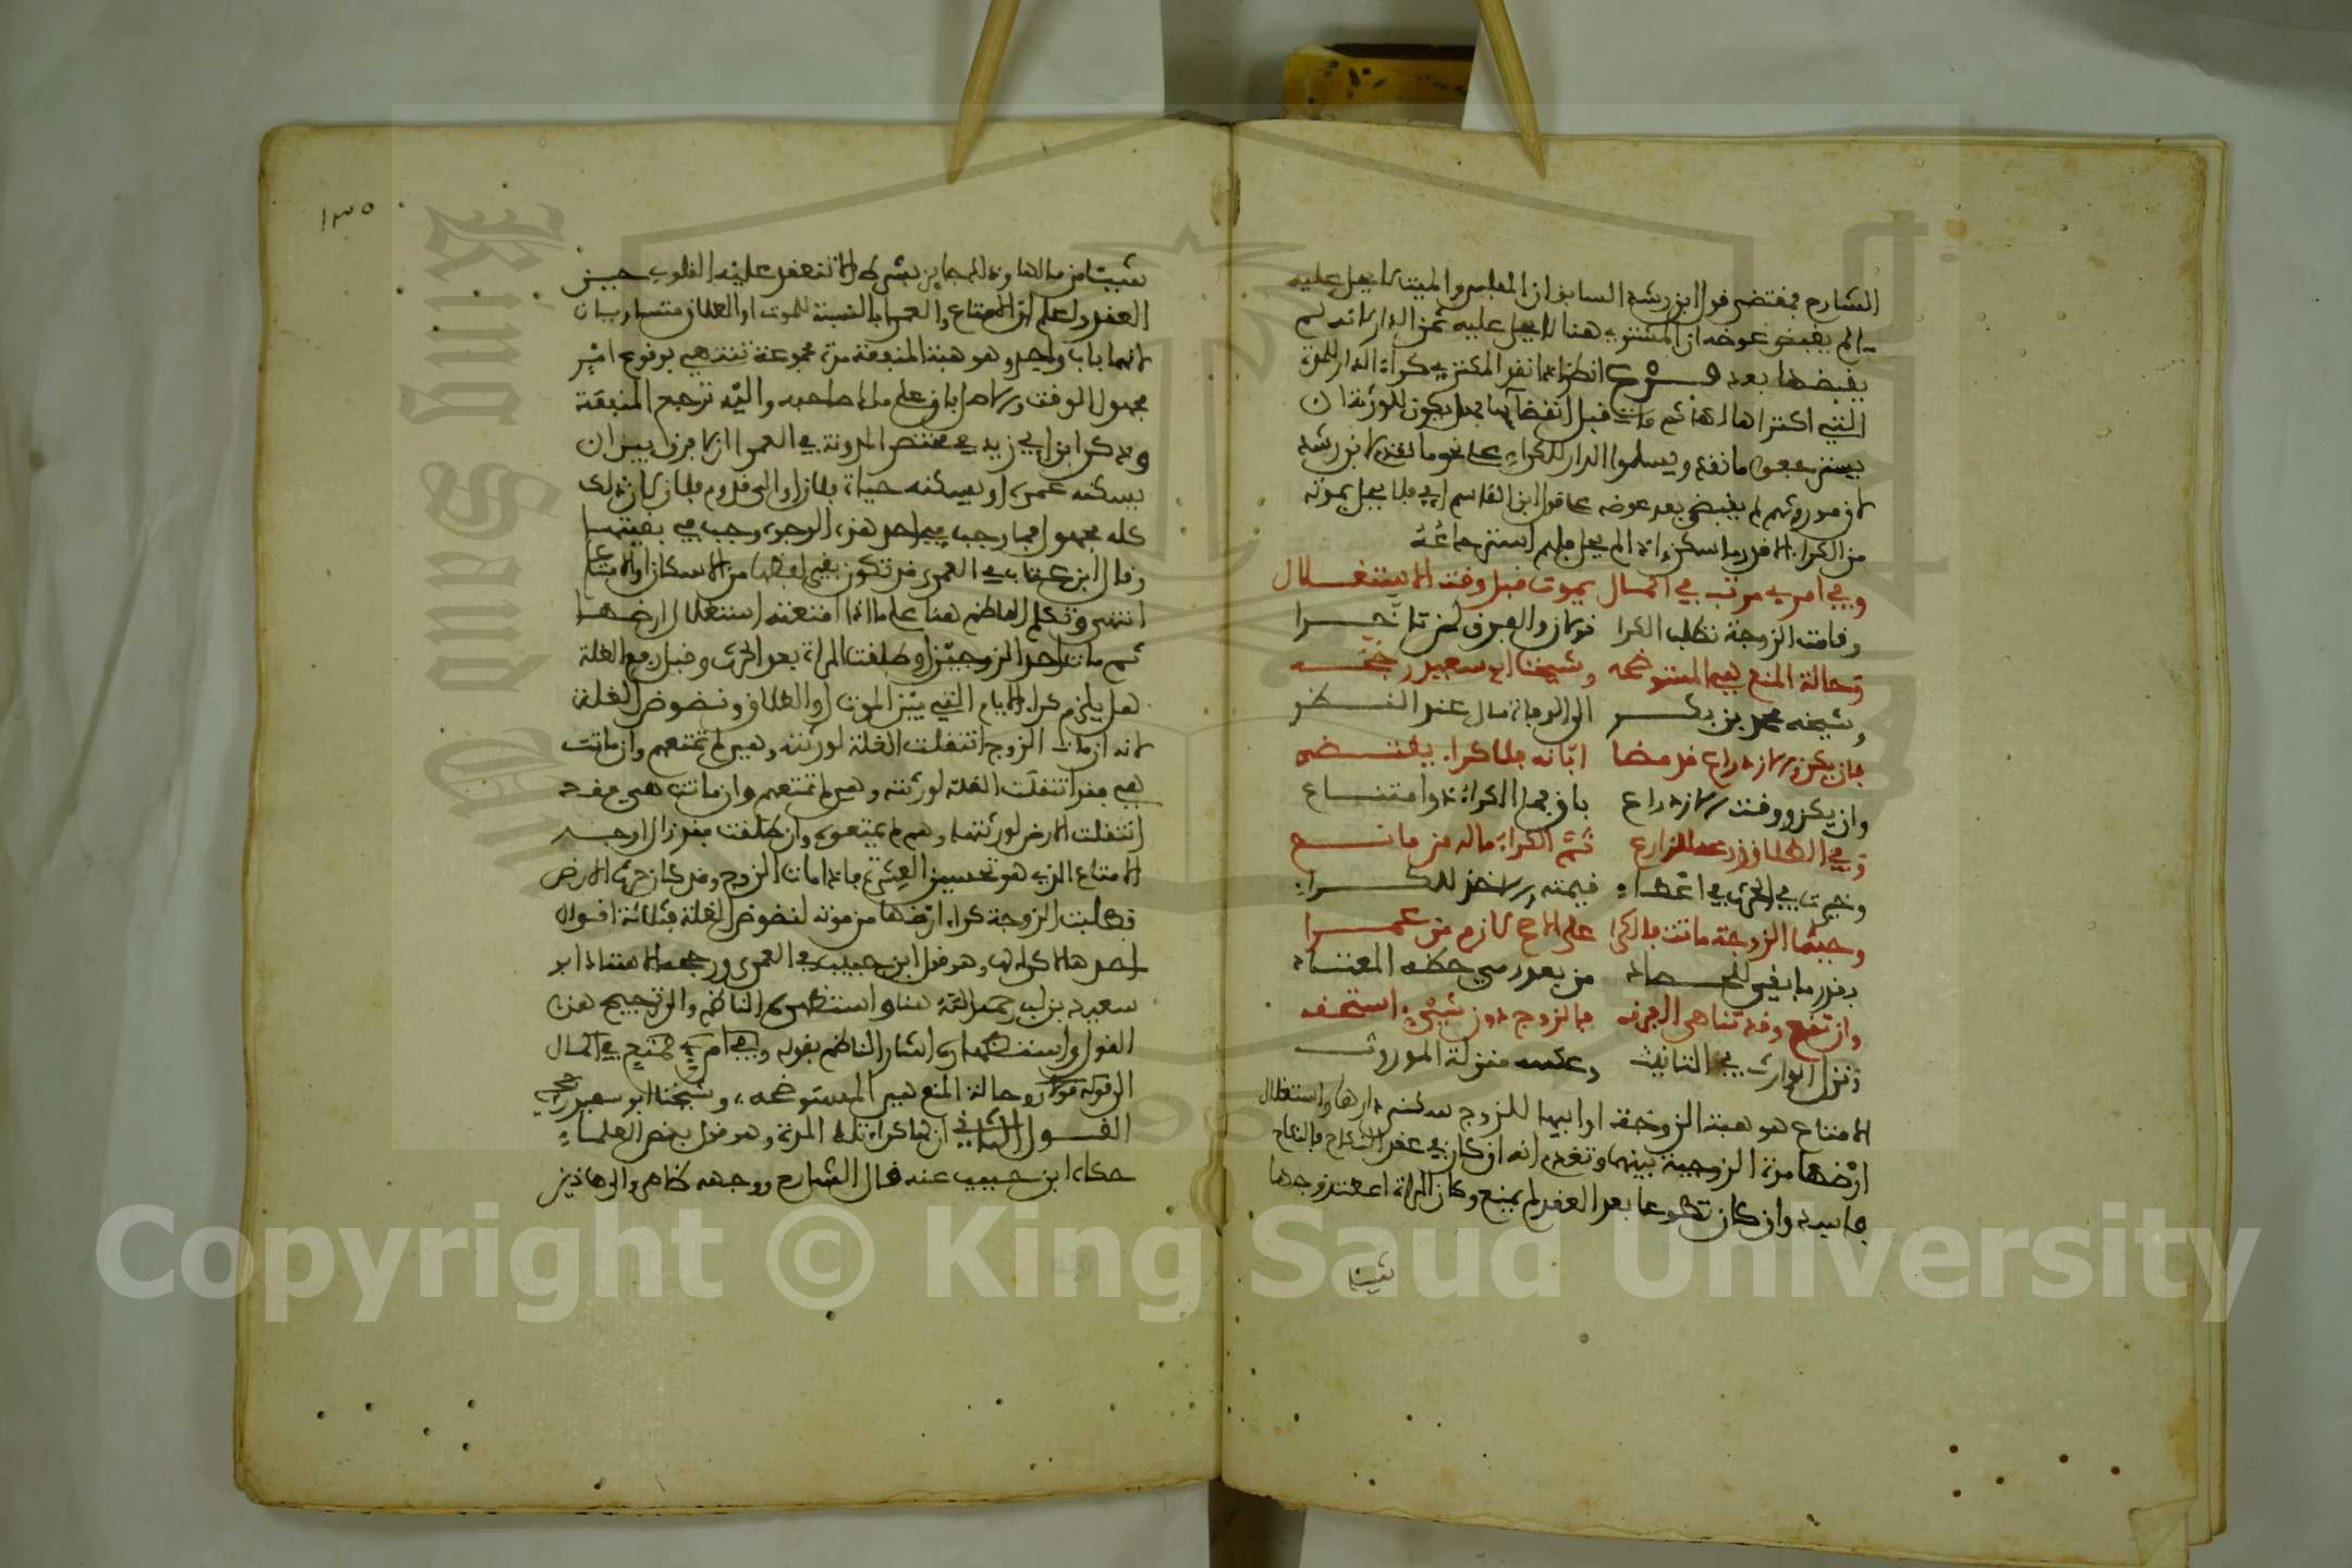 الشارح فمقتضى قول ابن رشد السابق ان المفلس والميت لا يحل عليه
ما لم يقبض عوضه ان المشتري هنا لا يحل عليه ثمن الدار لانه لم
يقبضها بعد فرع انظر اذا نقد المكتري كراء الدار للمدة
التي اكتراها لها ثم مات قبل انقضائها فهل يكون للورثة ان
ما نقد ويسلموا الدار للكراء على نحو ما لابن رشد
لان موروثهم لم يقبض بعد عوضه على قول ابن القاسم اي فلا يحل بموته
من الكراء الا قدر ما سكن واذا لم يحل فلهم استرجاعه
وفي امرئ مرتب في الحال يموت قبل وقت الاستغلال
وقامت الزوجة تطلب الكرا قولان والفرق لمن تاخرا
وحالة المنع هي المستوضحه وشيخنا ابو سعيد رجحه
وشيخه محمد بن بكر الى الوجادة مال عند النظر
فان يكن وان ازدراع قد مضا ابانه فلا كراء يقتضى
وان يكن ووقت الازدراع باق فما الكراء ذو امتناع
وفي الطلاق زرعه للزارع ثم الكراء ما له من مانع
وخيرت في الحرث في اعطاء قيمته والاخذ للكراء
وحيثما الزوجة ماتت فالكرا على الاصح لازم من عمرا
بقدر ما بقي للحصاد من بعد رعي حظه المعتاد
وان تقع وقد تناهى الفرقه فالزوج دون شيء استحقه
ونزل الوارث في التانيث وعكسه منزلة الموروث
الامتاع هو هبة الزوجة او ابيها للزوج سكنى دارها واستغلال
ارضها مدة الزوجية بينهما وتقدم انه ان كان في عقد النكاح فالنكاح
فاسد وان كان تطوعا بعد العقد لم يمنع وكان المراة اعطت زوجها
شيئا
١٣٥
شيئا من مالها وذلك جايز بشرط الا تنعقد عليه القلوب حين
العقد واعلم ان الامتاع والعمرا بالنسبة للموت او الطلاق متساويان
لانهما باب واحد وهو هبة المنفعة مدة مجموعة تنتهي بوقوع امر
مجهول الوقت والاصل باق على ملك صاحبه واليه ترجع المنفعة
وذكر ابن ابي زيد في مختصر المدونة في العمرا ان لا فرق بين ان
يسكنه عمره او يسكنه حياة فلان او الى قدوم فلان لان ذلك
كله مجهول فما وجب في احد هذه الوجوه وجب في بقيتها
وقال ابن عتاب في العمرى قد تكون بغير لفظها من الاسكان والامتاع
انتهى وتكلم الناظم هنا على ما اذا امتعته استغلال ارضها
ثم مات احد الزوجين او طلقت المراة بعد الحرث وقبل رفع الغلة
هل يلزم كراء الايام التي بين الموت او الطلاق ونضوض الغلة
لانه ان مات الزوج انتقلت الغلة لورثته وهي لم تمتعهم وان ماتت
هي فقد انتقلت الغلة لورثته وهي لم تمتعهم وان ماتت هي فقد
انتقلت الارض لورثتها وهم لم يمتعوه وان طلقت فقد زال وجه
الامتاع الذي هو تحسين العشرة فاذا مات الزوج وقد كان حرث الارض
وطلبت الزوجة كراء ارضها من موته لنضوض الغلة فثلاثة اقوال
احدها لا كراء لها وهو قول ابن حبيب في العمرى ورجحه الاستاذ ابو
سعيد بن لب رحمه الله هنا واستظهره الناظم والى ترجيح هذا
القول واستظهاره اشار الناظم بقوله وفي امرئ ممتع في الحال
الى قوله قولان وحالة المنع هي المستوضحه وشيخنا ابو سعيد رجحه
القول الثاني ان لها كراء تلك المدة وهو قول بعض العلماء
حكاه ابن حبيب عنه قال الشارح ووجهه ظاهر والى هاذين
Copyright © King Saud University
King Saud University